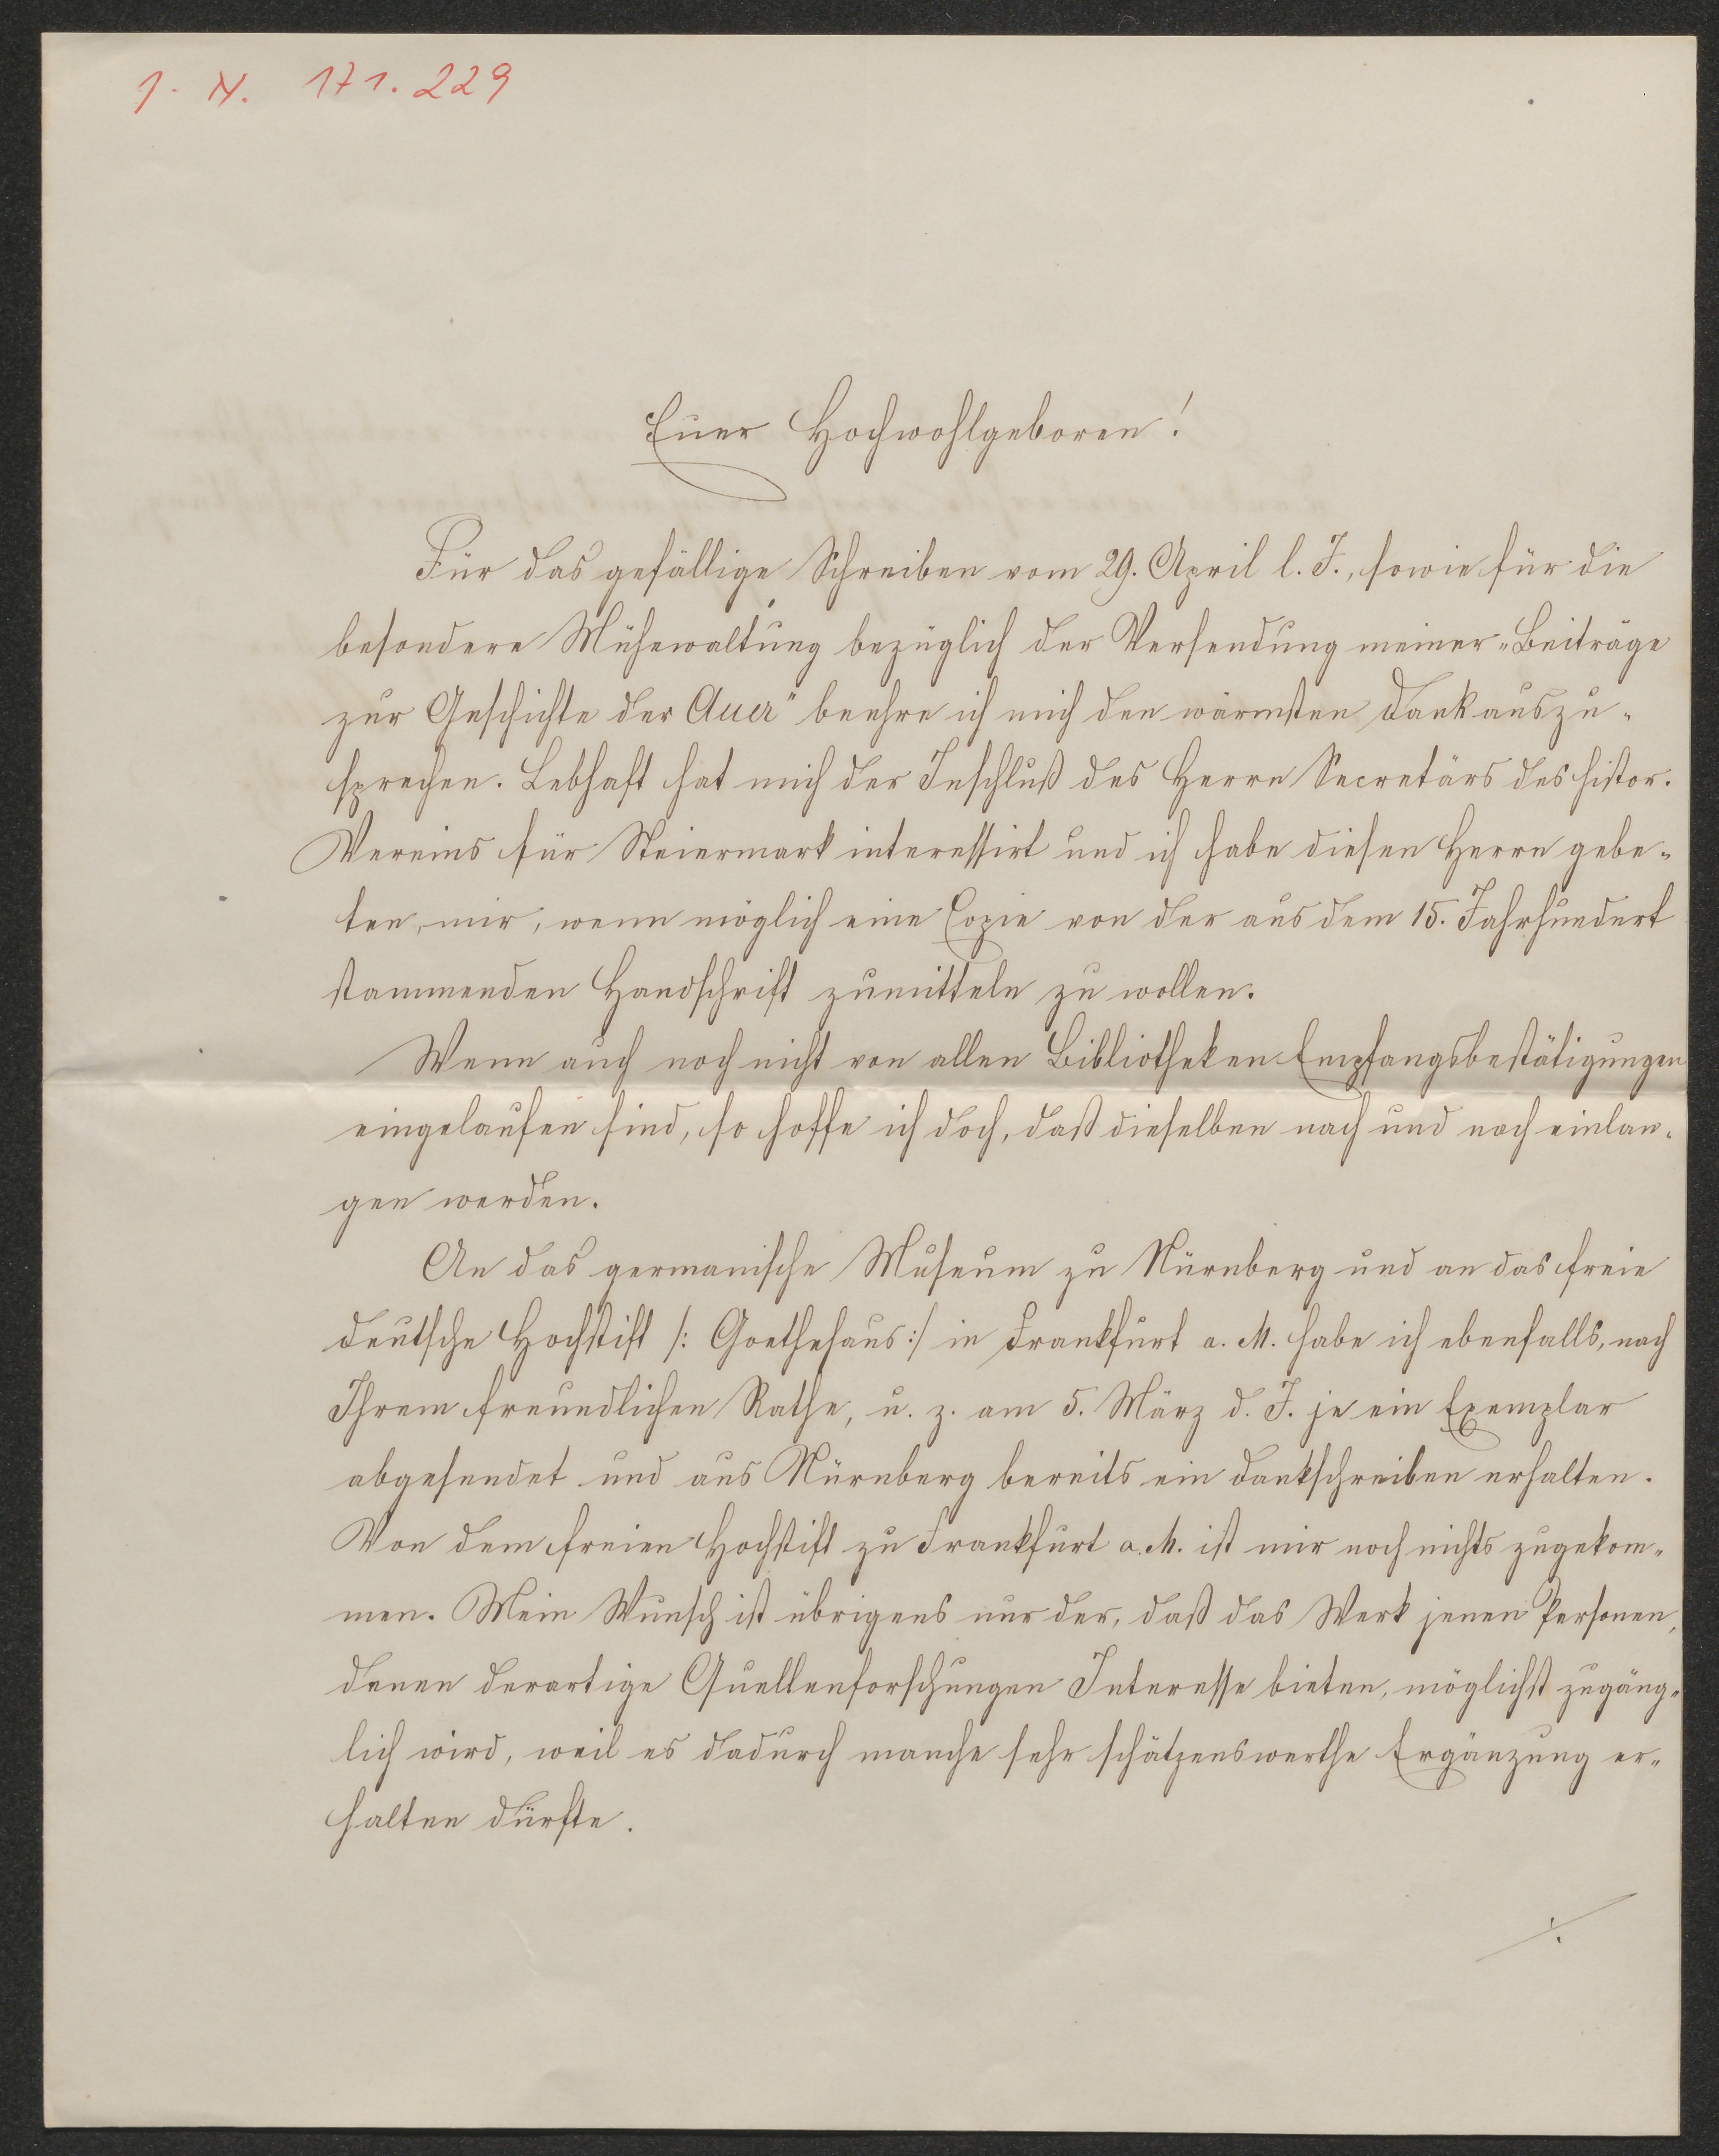 J. N. 171.229
Euer Hochwohlgeboren!
Für das gefällige Schreiben vom 29. April l. J., sowie für die
besondere Mühewaltung bezüglich der Versendung meiner „Beiträge
zur Geschichte der Auer" beehre ich mich den wärmsten Dank auszu-
sprechen. Lebhaft hat mich der Inschluß des Herrn Secretärs des histor.
Vereins für Steiermark interessirt und ich habe diesen Herrn gebe-
ten, mir, wenn möglich eine Copie von der aus dem 15. Jahrhundert
stammenden Handschrift zumitteln zu wollen.
Wenn auch noch nicht von allen Bibliotheken Empfangsbestätigungen
eingelaufen sind, so hoffe ich doch, daß dieselben nach und nach einlan-
gen werden.
An das germanische Museum zu Nürnberg und an das freie
deutsche Hochstift /: Goethehaus:/ in Frankfurt a. M. habe ich ebenfalls, nach
Ihrem freundlichen Rathe, u. z. am 5. März d. J. je ein Exemplar
abgesendet und aus Nürnberg bereits ein Dankschreiben erhalten.
Von dem freien Hochstift zu Frankfurt a. M. ist mir noch nichts zugekom-
men. Mein Wunsch ist übrigens nur der, daß das Werk jenen Personen,
denen derartige Quellenforschungen Interesse bieten, möglichst zugäng-
lich wird, weil es dadurch manche sehr schätzenswerthe Ergänzung er-
halten dürfte.
./.